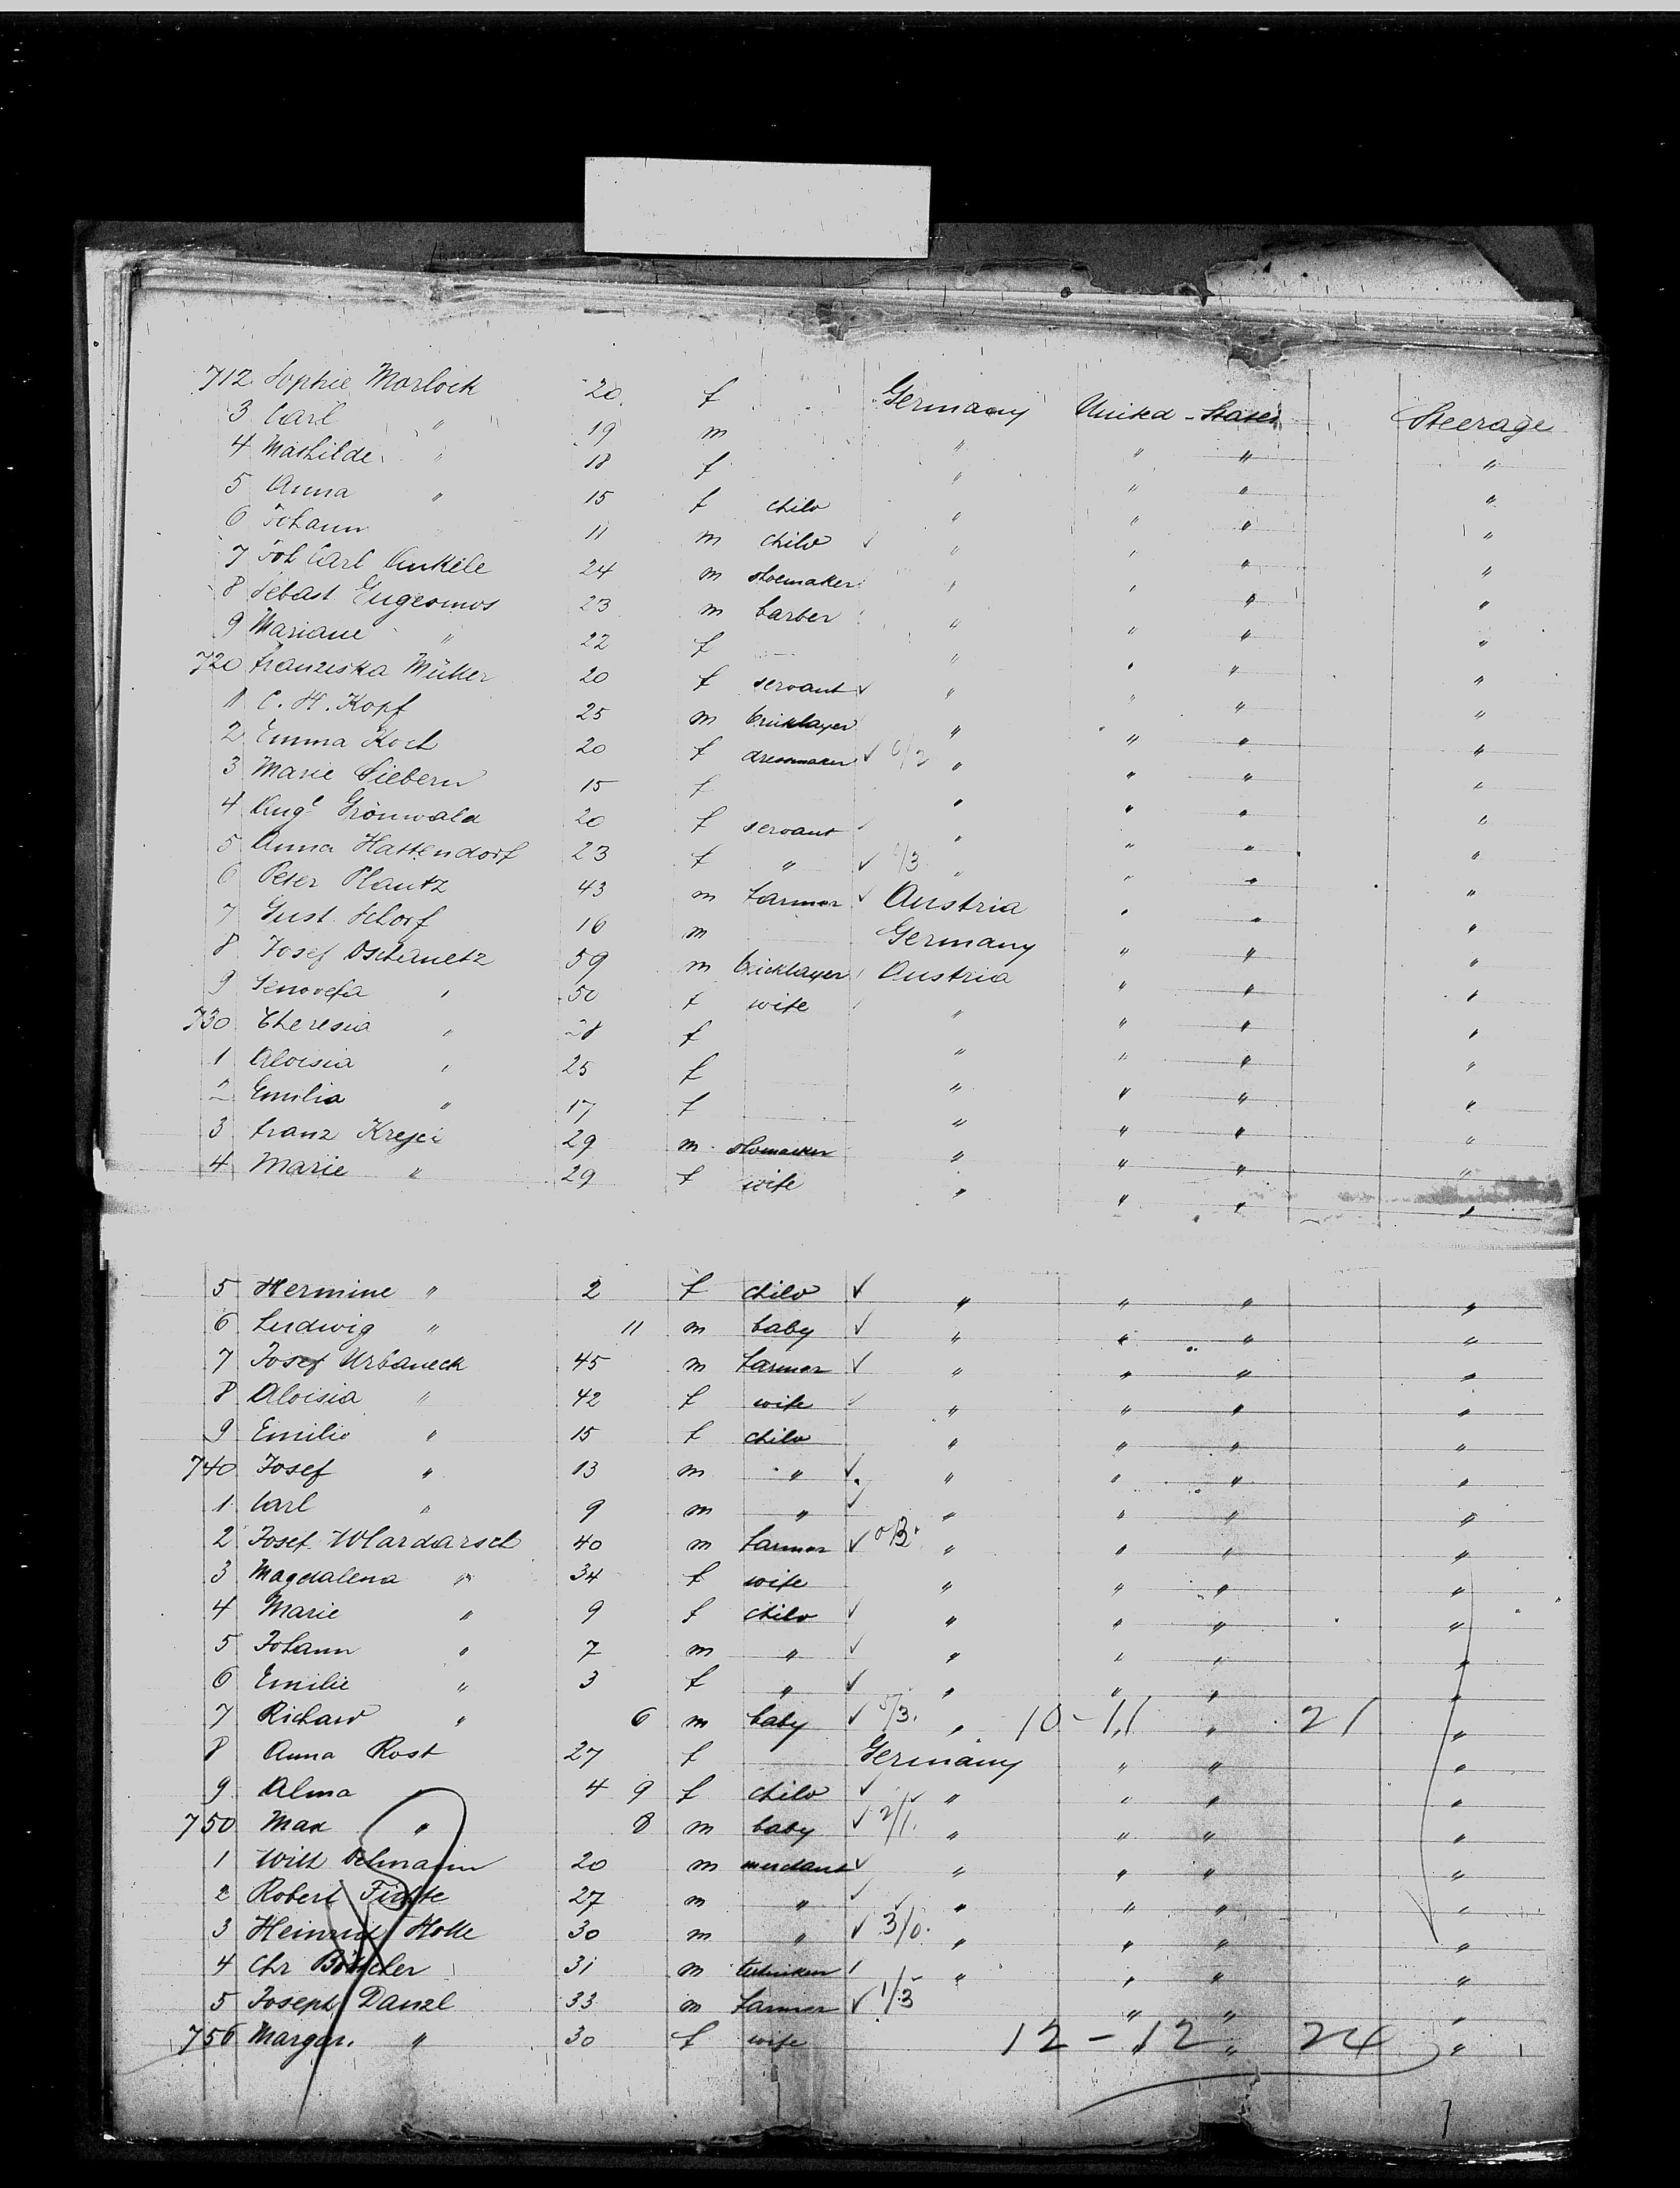 712 Sophie Morlock 20 f Germany United-States Steerage
3 Carl " 19 m " " " "
4 Mathilde " 18 f " " " "
5 Anna " 15 f child " " " "
6 Johann 11 m child " " " "
7 Joh Carl Unkele 24 m shoemaker " " " "
8 Sebast. 23 m barber " " " "
9 Mariane " 22 f " " " "
720 Franziska Müller 20 f servant " " " "
1 C. H. Kopf 25 m bricklayer " " " "
2 Emma Koch 20 f dressmaker 0/2 " " " "
3 Marie Siebern 15 f " " " "
4 Aug. Grönwald 20 f servant " " " "
5 Anna Hattendorf 23 f " /3 " " " "
6 Peter Plautz 43 m farmer Austria " " "
7 Gust. Schorf 16 m Germany " " "
8 Josef Oschanetz 59 m bricklayer Austria " " "
9 Genovefa " 50 f wife " " " "
730 Theresia " 28 f " " " "
1 Aloisia " 25 f " " " "
2 Emilia " 17 f " " " "
3 Franz Krejci 29 m shomaker " " " "
4 Marie " 29 f wife " " " "
5 Hermine " 2 f child " " " "
6 Ludwig " 11 m baby " " " "
7 Josef Urbaneck 45 m farmer " " " "
8 Aloisia " 42 f wife " " " "
9 Emilie " 15 f child " " " "
740 Josef " 13 m " " " " "
1 Carl " 9 m " " " " "
2 Josef Wlardarsch 40 m farmer 0/3 " " " "
3 Magdalena " 34 f wife " " " "
4 Marie " 9 f child " " " "
5 Johann " 7 m " " " " "
6 Emilie " 3 f " " " " "
7 Richard " 6 m baby 5/3. " 10-11 " 21 "
8 Anna Rost 27 f Germany " " "
9 Alma " 4 9 f child " " " "
750 Max " 8 m baby 2/1. " " " "
1 Wilh Oelmann 20 m merchant " " " "
2 Robert 27 m " " " " "
3 Heinrich Holle 30 m " 3/0. " " " "
4 Chr Böttcher 31 m " " " "
5 Joseph Danzl 33 m farmer 1/3 " " "
756 Margar. " 30 f wife 12-12 " 24 "